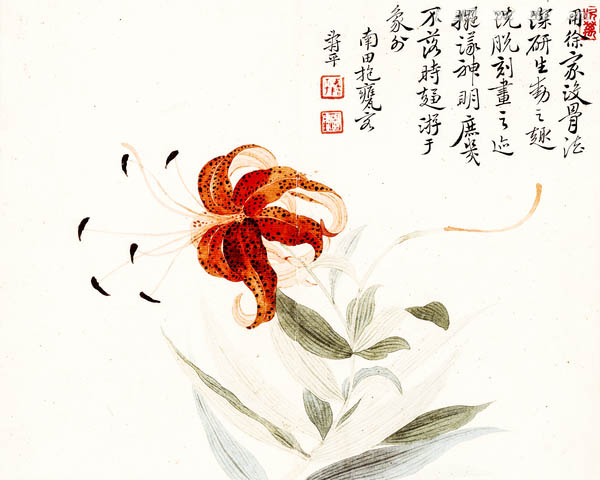 用徐家没骨法
深研生動之趣
洗脫刻畫之迹
擬議神明庶幾
不落時游于
象外
南田抱甕客
壽平